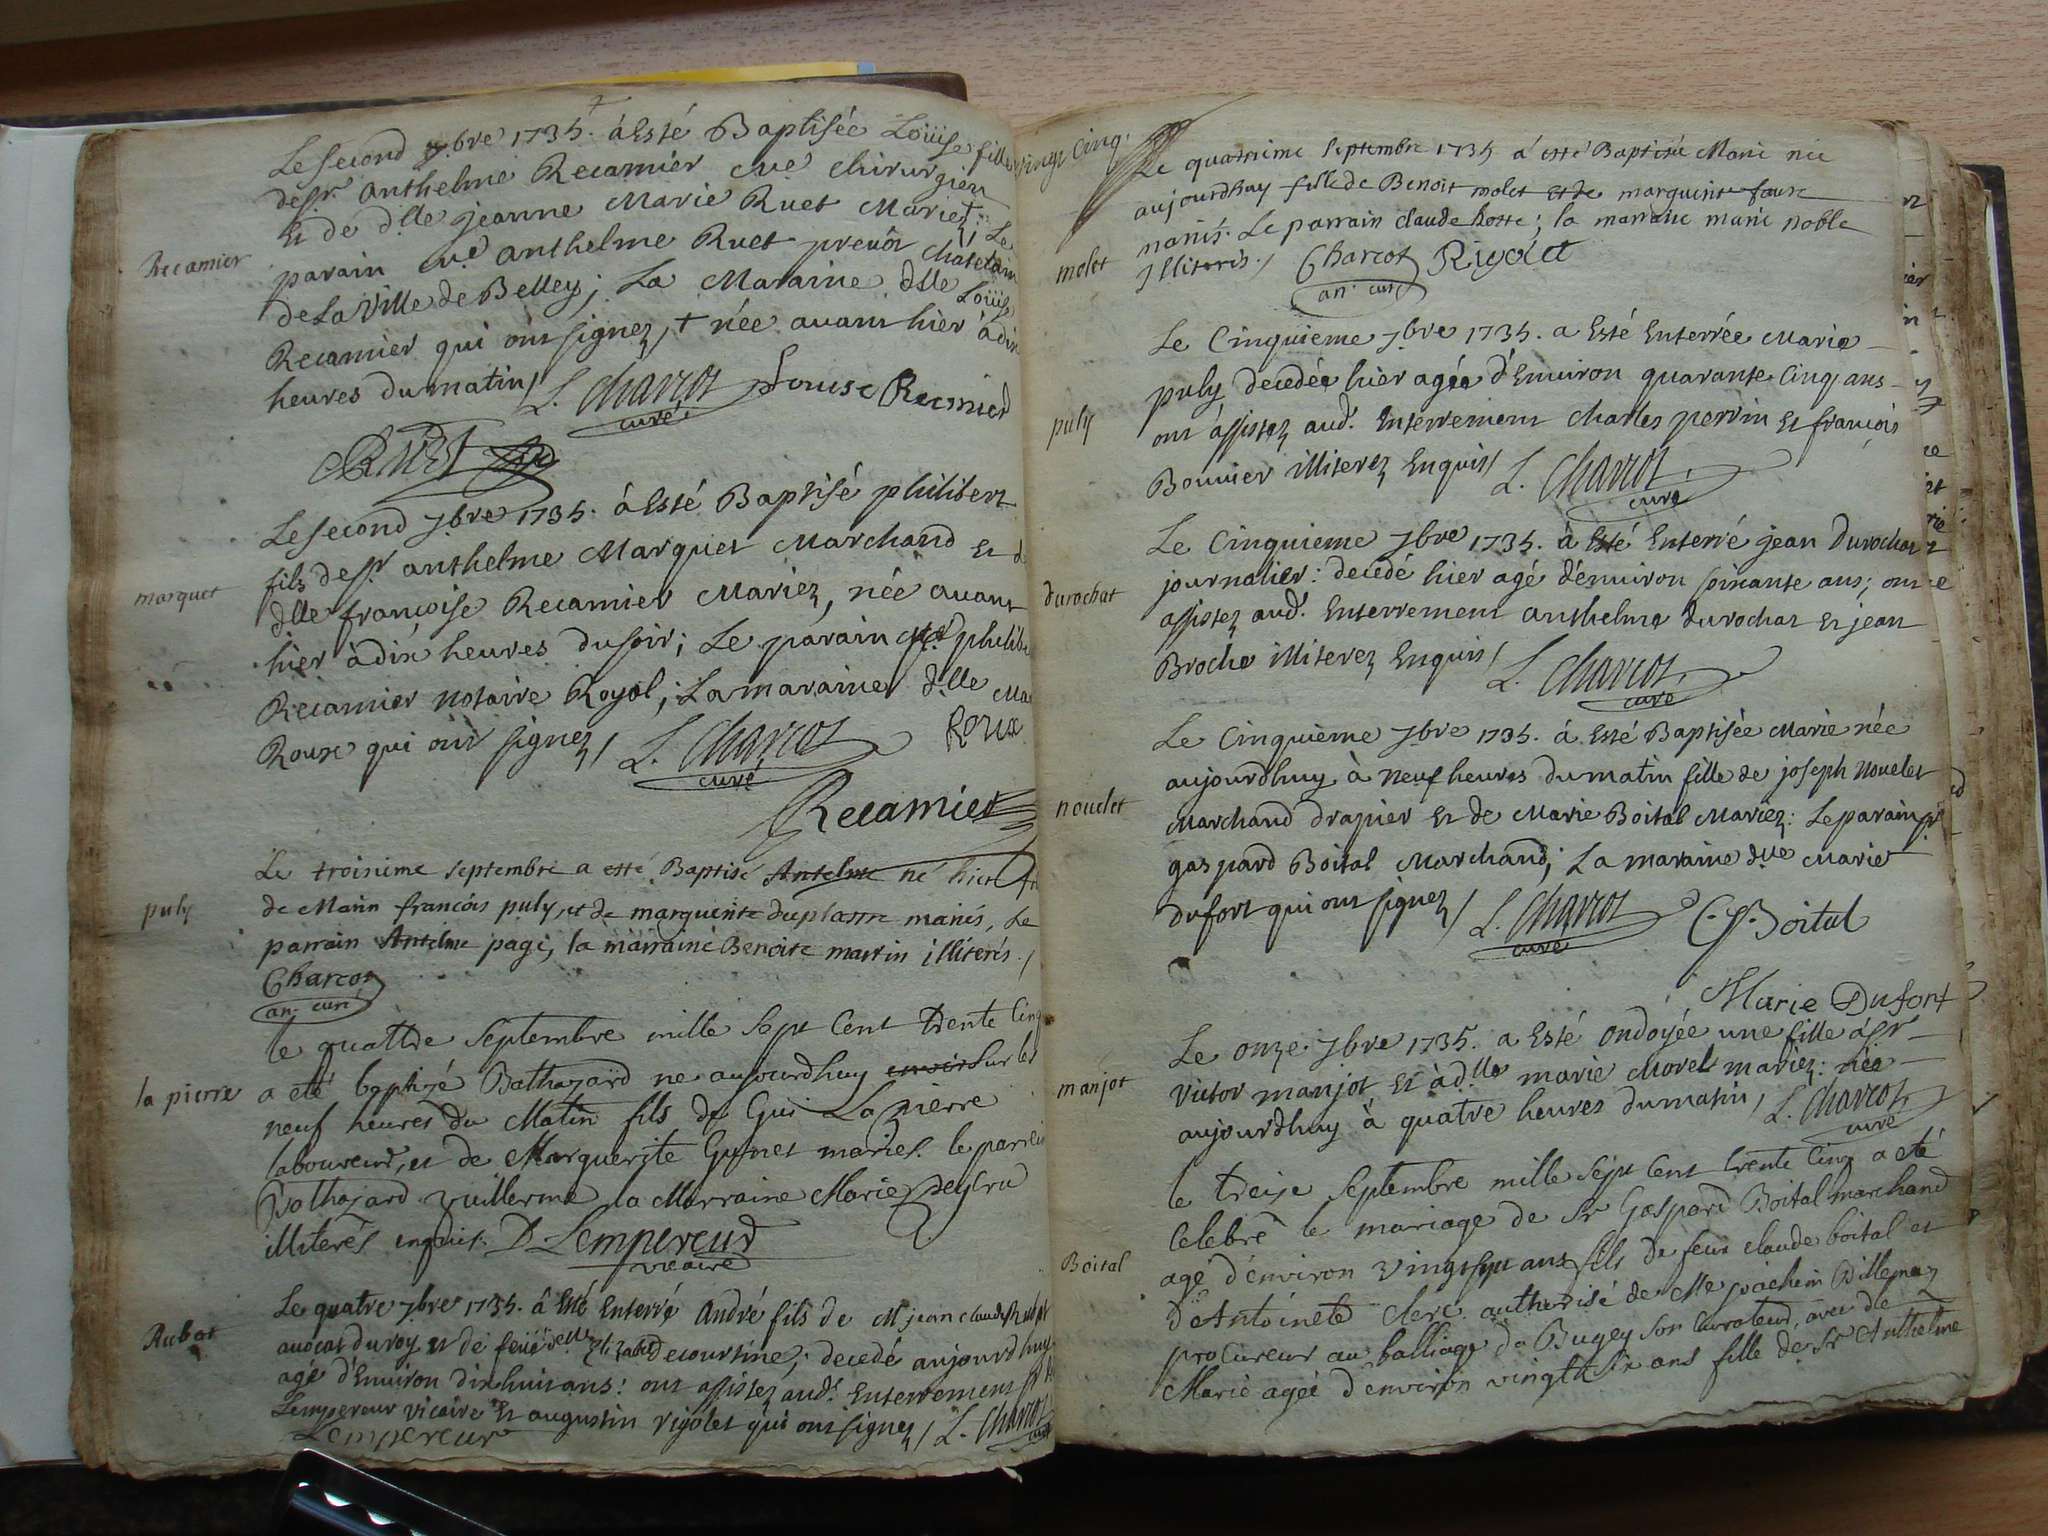 Le second 7.bre 1735. à Esté Baptisée Loüise fille
de Sr. anthelme Recamier Me chirurgien
Et de d.lle jeanne Marie Ruet Mariez; Le
Recamier
parain Me anthelme Ruet prevôt Chatelain
de La Ville de Belley; La Maraine dlle Loüise
Recamier qui ont signez, + née avant hier à dix
heures du matin/ L. Charcot Louise Recmier
curé
Ruet
Le second 7bre 1735. à Esté Baptisé philibert
fils de Sr. anthelme Marquet Marchand Et d
marquet
dlle françoise Recamier Mariez, née avant
hier à dix heures du soir; Le parain Me philib
Recamier notaire Royal; La maraine d.lle Ma
Roux qui ont signez/ L. Charcot Roux
curé
Recamier
Le troisieme septembre a esté Baptisé Antelme né hier
puly
de Marin françois puly, et de marguerite duplastre mariés, Le
parrain Antelme page, la marraine Benoite martin illiterés./
Charcot
an. curé
le quattre septembre mille sept Cent trente Cinq
la pierre
a eté baptizé Bathazard ne aujourdhuy sur les
neuf heures du Matin fils de Gui La pierre
laboureur, et de Marguerite Gynet mariés. le parrein
Bathazard vuillerme la Marraine Marie Deylru
illiterés enquis. D Lempereur
vicaire
Le quatre 7bre 1735. à Esté Enterré André fils de M. jean claude Rubat
Rubat
avocat du roy et de feüe delle Elizabet decourtine; decedé aujourdhuy
agé d'Environ dix huit ans: ont assistez aud. Enterrement Sr
Lempereur vicaire Et augustin rigolet qui ont signez/ L. Charcot
Lempereur curé
vingt Cinq.
Le quatrieme septembre 1735 a esté Baptisée Marie née
aujourdhuy fille de Benoit molet et de marguerite faure
mariés. Le parrain claude hoste; la marraine marie noble
molet
illiterés./ Charcot Rigolet
an. curé
Le Cinquieme 7bre 1735. a Esté Enterrée Marie
puly decedée hier agée d'Environ quarante Cinq ans
puly
ont assistez aud. Enterrement Charles perrin Et françois
Bonnier illiterez Enquis/ L. Charcot
curé
Le Cinquieme 7bre 1735. à Esté Enterré jean Durochat
durochat
journalier: decedé hier agé d'environ soixante ans; ont
assistez aud. Enterrement anthelme durochat Et jean
Broche illiterez Enquis/ L. Charcot
curé
Le Cinquieme 7bre 1735. à Esté Baptisée Marie née
aujourdhuy à neuf heures du matin fille de joseph Nouelet
nouelet
Marchand drapier Et de Marie Boital Mariez: Le parain Sr
gaspard Boital Marchand; La maraine dlle Marie
dufort qui ont signez/ L. Charcot G. Boital
curé
Marie Dufort
Le onze 7bre 1735. a Esté ondoyée une fille à Sr
manjot
victor manjot, et à d.lle marie Morel mariez: née
aujourdhuy à quatre heures du matin/ L. Charcot
curé
le treize septembre mille sept Cent trente Cinq a eté
Celebré le mariage de Sr Gaspard Boital marchand
Boital
agé d'environ vingt sept ans fils de feu claude boital et
d'Antoinete Clerc autherisé de Me joachein Billemaz
procureur au balliage de Bugey son Curateur, avec dle
Marie agée d'environ vingt six ans fille de Sr Anthelme